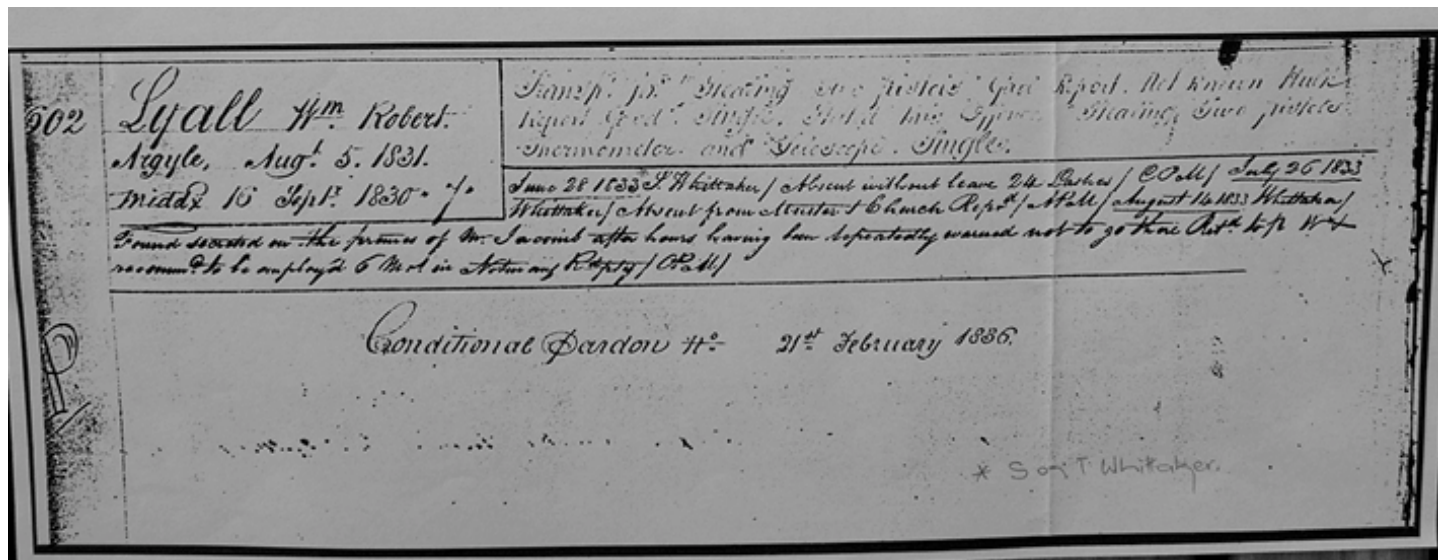 902 Lyall Wm. Robert.
Argyle, Augt. 5. 1831.
Middx 16 Septr. 1830 - 7/-
Transpd. for Stealing two pistols Gaol Report. Not known Hulk
Report Good. Single. Stated this Offence Stealing Two pistols
Thermometer and Telescope. Single.
June 28 1833 * Whittaker / Absent without leave 24 Lashes / / July 26 1833
Whittaker / Absent from Muster & Church Reprd / / August 14 1833 Whittaker /
Found secreted on the premises of Mr. after hours having been repeatedly warned not to go there
recommd. to be employd 6 Mos in
Conditional Pardon No. 21st February 1836.
* S or T Whittaker.